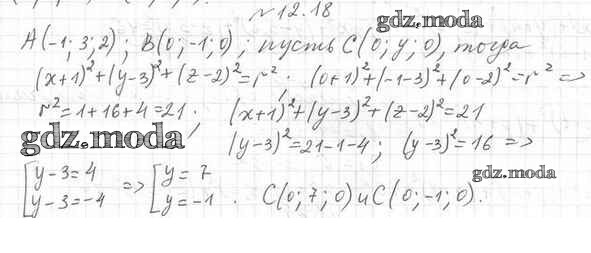 №12.18
gdz.moda
A(-1; 3; 2); B(0; -1; 0); пусть C(0; y; 0), тогда
(x+1)²+(y-3)²+(z-2)²=r²; (0+1)²+(-1-3)²+(0-2)²=r² =>
r²=1+16+4=21; (x+1)²+(y-3)²+(z-2)²=21
gdz.moda
(y-3)²=21-1-4; (y-3)²=16 =>
gdz.moda
[y-3=4 => [y=7
[y-3=-4 [y=-1. C(0; 7; 0) и C(0; -1; 0).